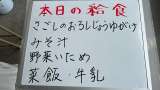 本日の給食
さごしのおろしじょうゆがけ
みそ汁
野菜いため
菜飯・牛乳